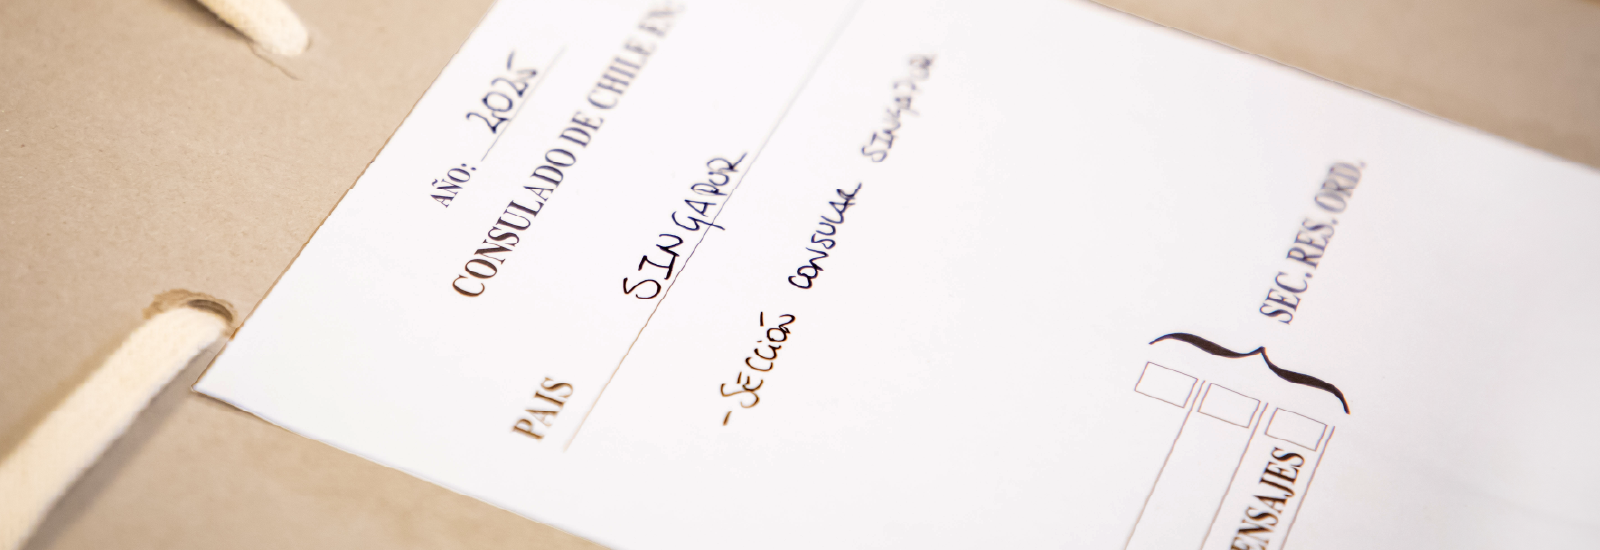 AÑO: 2025
CONSULADO DE CHILE EN:
PAIS SINGAPUR
- SECCIÓN CONSULAR SINGAPUR
SEC. RES. ORD.